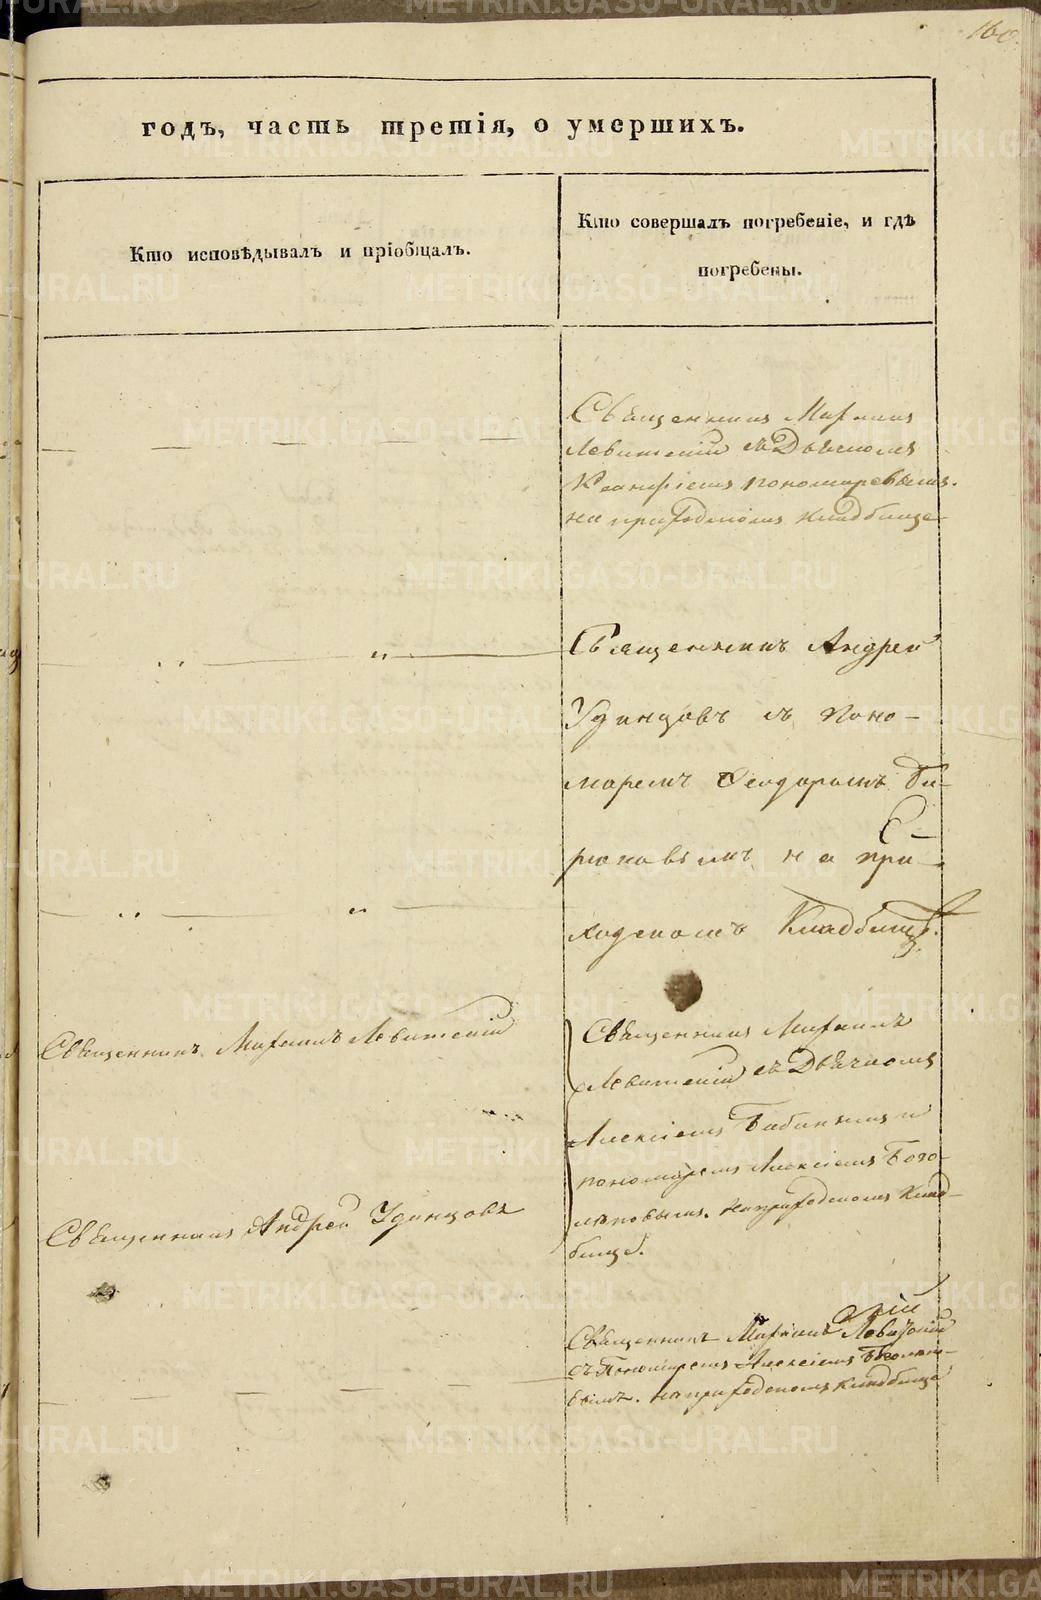 160.
годъ, часть третія, о умершихъ.
Кто исповѣдывалъ и пріобщалъ.
Кто совершалъ погребеніе, и гдѣ
погребены.
Священникъ Михаилъ
Левитскій съ Дьячкомъ
Пономаревымъ.
на приходскомъ кладбище
Священникъ Андрей
Удинцовъ съ Поно-
маремъ Феодоромъ Би-
рюковымъ на при-
ходскомъ Кладбищѣ.
Священникъ Михаилъ Левитскій
Священникъ Михаилъ
Левитскій съ Дьячкомъ
Алексіемъ Бабинымъ и
пономаремъ Алексіемъ Бого-
моловымъ. на приходскомъ Клад-
бище.
Священникъ Андрей Удинцовъ
Священникъ Михаилъ Левитскій
съ Пономаремъ Алексіемъ
вымъ. на приходскомъ кладбище
METRIKI.GASO-URAL.RU